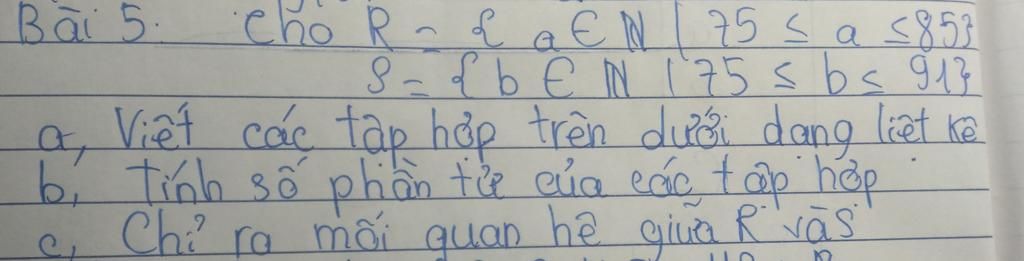 Bài 5. Cho R = { a ∈ ℕ | 75 ≤ a ≤ 85}
S = { b ∈ ℕ | 75 ≤ b ≤ 91}
a, Viết các tập hợp trên dưới dạng liệt kê
b, Tính số phần tử của các tập hợp
c, Chỉ ra mối quan hệ giữa R và S